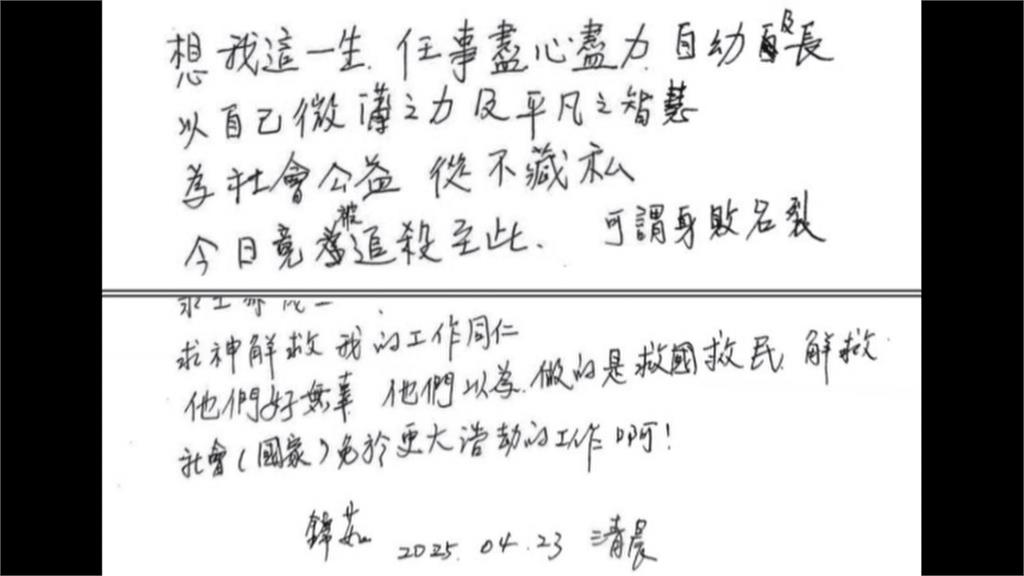 想我這一生. 任事盡心盡力. 自幼及長
以自己微薄之力及平凡之智慧
為社會公益 從不藏私
今日竟被追殺至此、 可謂身敗名裂
求神解救我的工作同仁
他們好無辜 他們以為.做的是救國救民. 解救
社會(國家)免於更大浩劫的工作啊!
鐘茹 2025. 04. 23 清晨